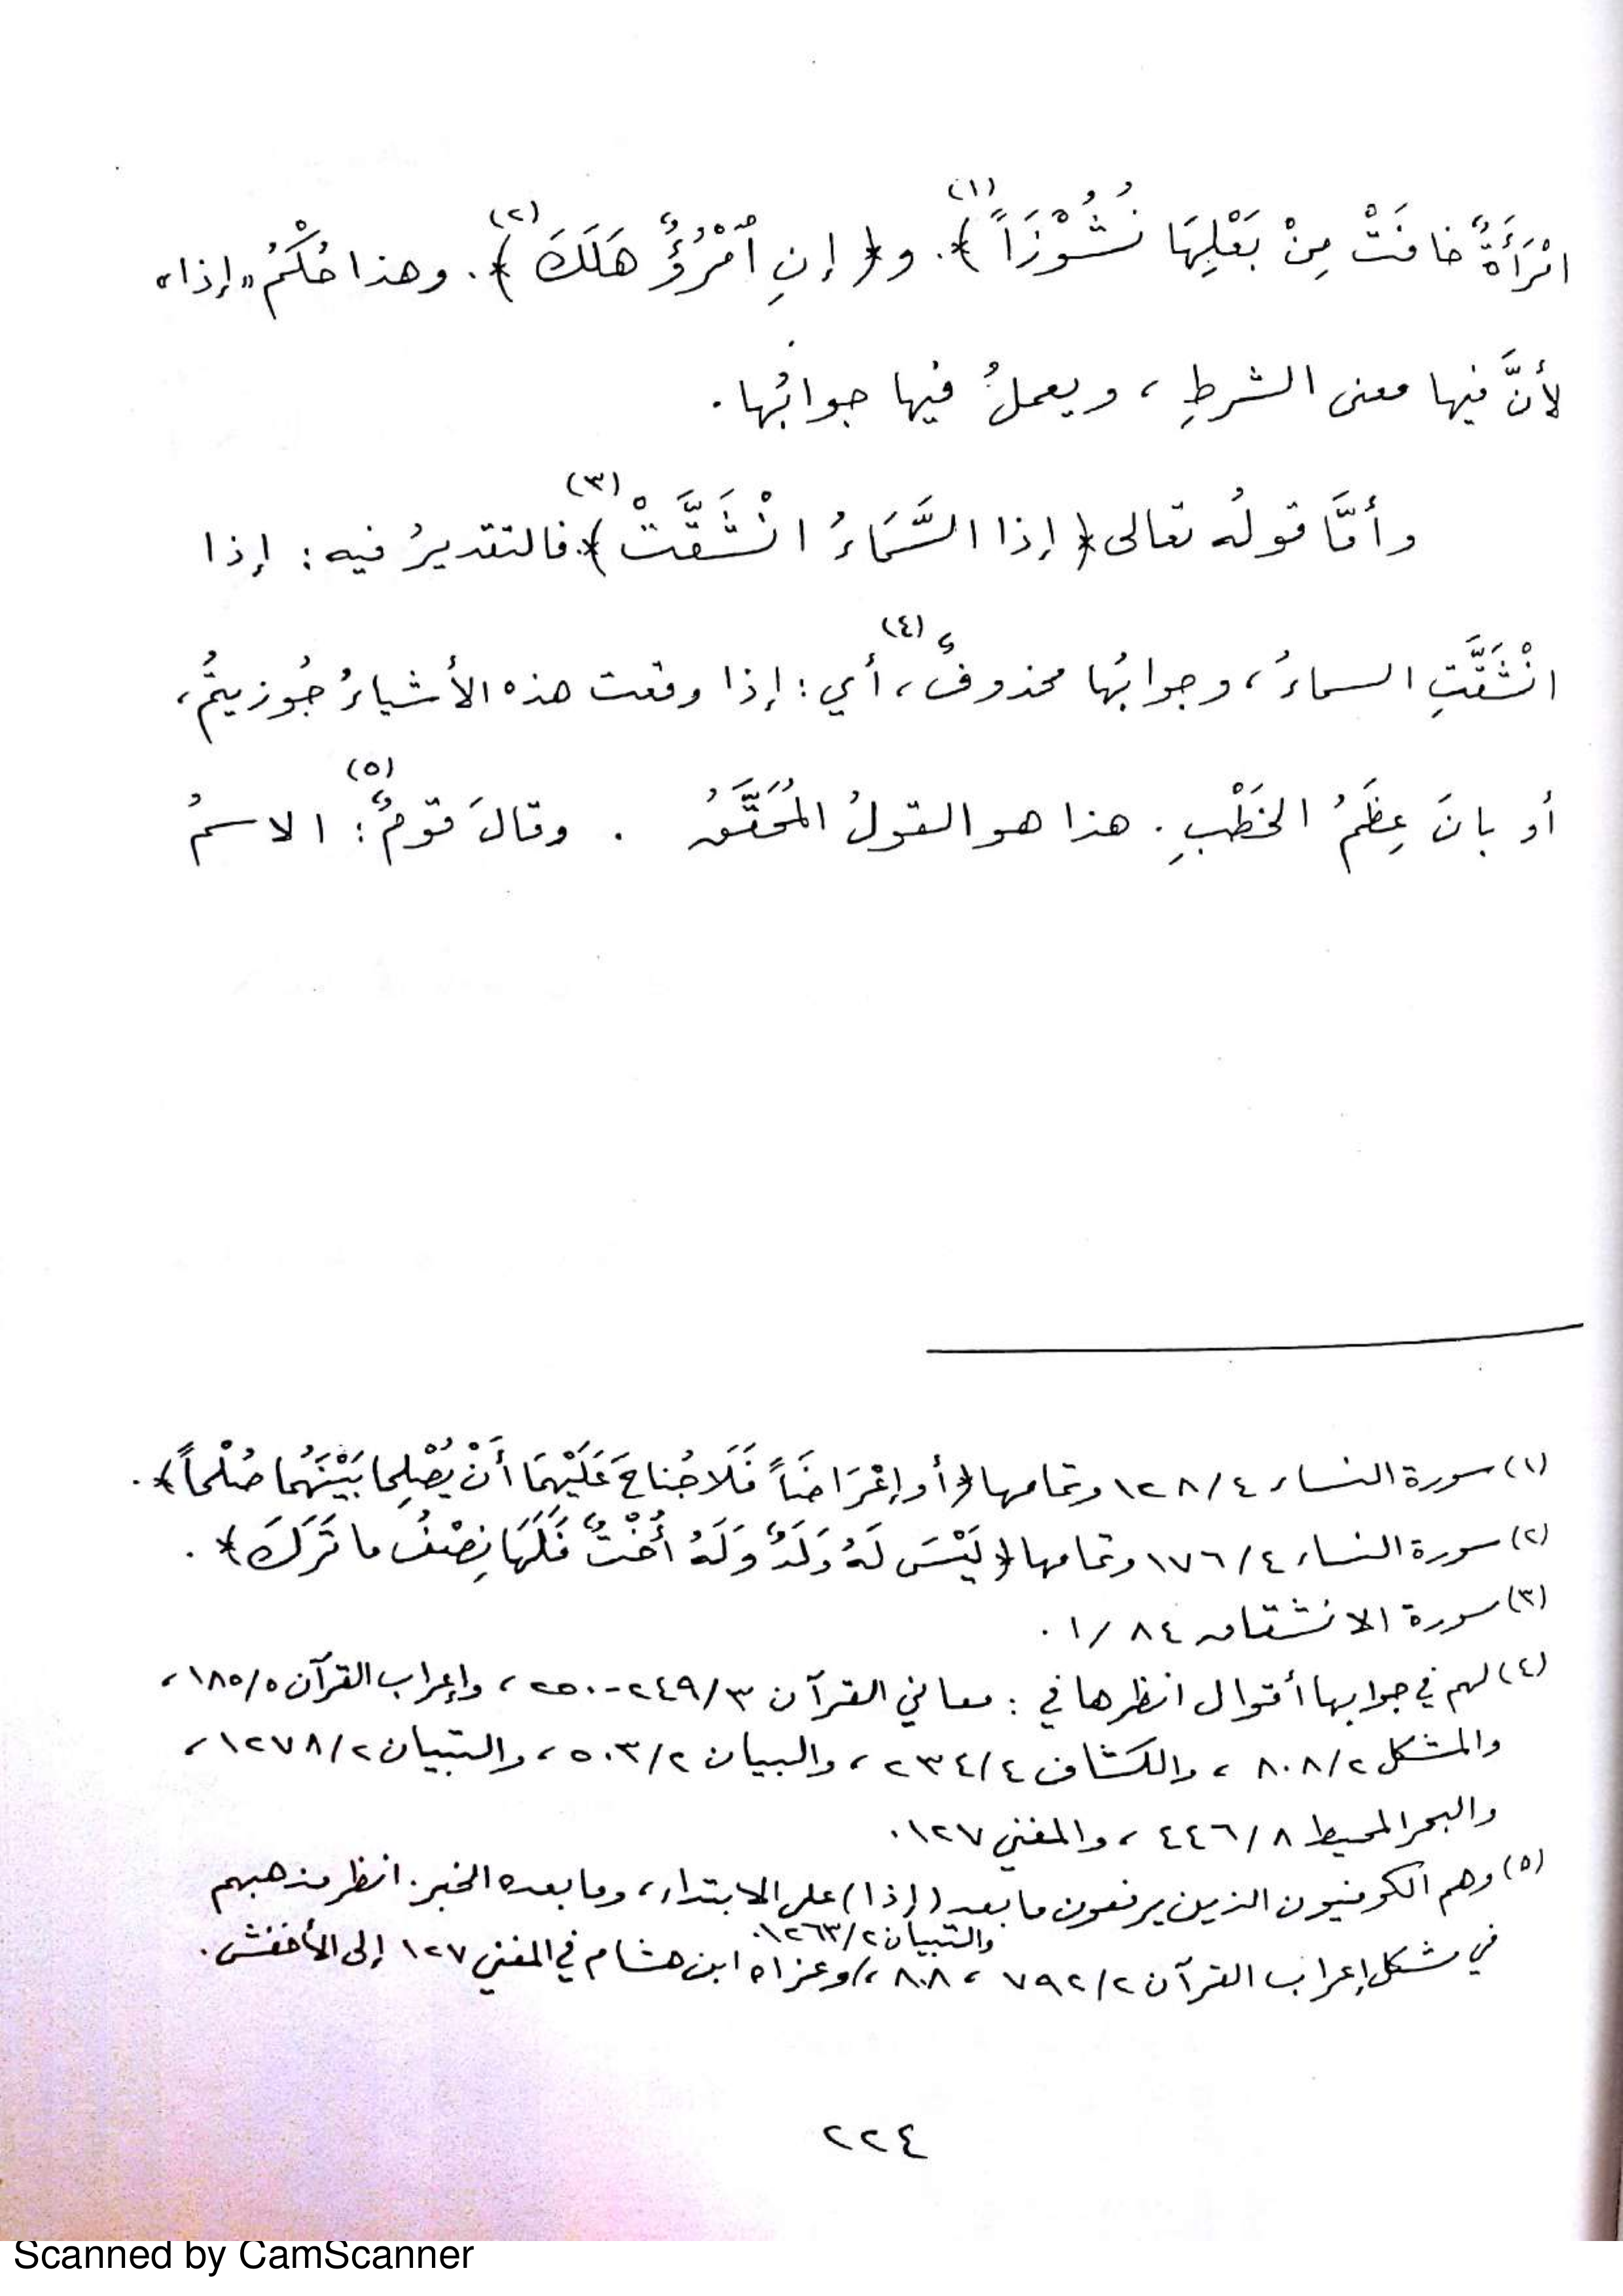 امْرَأَةٌ خافَتْ مِنْ بَعْلِهَا نُشُوْزَاً ﴾(١). و﴿ إنِ ٱمْرُؤٌ هَلَكَ ﴾(٢). وهذا حُكْمُ «إذا»
لأنَّ فيها معنى الشرطِ ، ويعملُ فيها جوابُها .
وأمَّا قولُه تعالى ﴿ إذا السَّمَاءُ انْشَقَّتْ ﴾(٣). فالتقديرُ فيه : إذا
انْشَقَّتِ السماءُ ، وجوابُها محذوفٌ(٤) ، أي : إذا وقعت هذه الأشياءُ جُوزيتُم ،
أو بانَ عِظَمُ الخَطْبِ . هذا هو القولُ المُحَقَّقُ . وقالَ قومٌ(٥) : الاسمُ
(١) سورة النساء ٤/ ١٢٨ وتمامها ﴿ أو إعْرَاضَاً فَلَا جُناحَ عَلَيْهِمَا أَنْ يُصْلِحا بَيْنَهُما صُلْحاً ﴾ .
(٢) سورة النساء ٤/ ١٧٦ وتمامها ﴿ لَيْسَ لَهُ وَلَدٌ وَلَهُ أُخْتٌ فَلَهَا نِصْفُ ما تَرَكَ ﴾ .
(٣) سورة الانشقاق ٨٤ /١ .
(٤) لهم في جوابها أقوال انظرها في : معاني القرآن ٣/ ٢٤٩-٢٥٠ ، وإعراب القرآن ٥/ ١٨٥ ،
والمشكل ٢/ ٨٠٨ ، والكشاف ٤/ ٢٣٤ ، والبيان ٢/ ٥٠٣ ، والتبيان ٢/ ١٢٧٨ ،
والبحر المحيط ٨/ ٤٤٦ ، والمغني ١٢٧ .
(٥) وهم الكوفيون الذين يرفعون ما بعد (إذا) على الابتداء ، وما بعده الخبر . انظر مذهبهم
والتبيان ٢/ ١٢٦٣ .
في مشكل إعراب القرآن ٢/ ٧٩٢ ، ٨٠٨ ،/ وعزاه ابن هشام في المغني ١٢٧ إلى الأخفش .
٢٢٤
Scanned by CamScanner